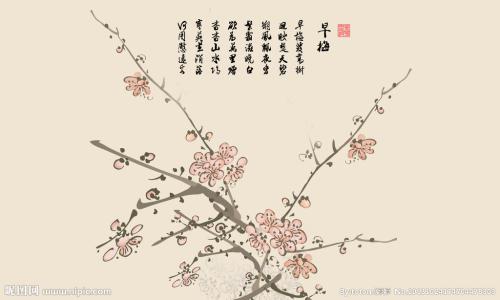 早梅
早梅發高樹
迥映楚天碧
朔風飄夜香
繁霜滋曉白
欲為萬里贈
杳杳山水隔
寒英坐銷落
何用慰遠客
昵图网 www.nipic.com